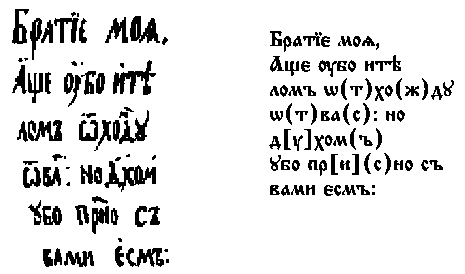 Братїе моѧ.
Аще ѹбо и тѣ
ломъ ѿхоⷤдꙋ
ѿваⷭ: но дх҃омⷨ
ꙋбо прⷭ҇но съ
вами єсмъ:
Братїє моꙗ,
Аще ѹбо итѣ
ломъ ѡ(т)хо(ж)дꙋ
ѡ(т)ва(с): но
д[ꙋ]хом(ъ)
ꙋбо пр[и](с)но съ
вами єсмъ: